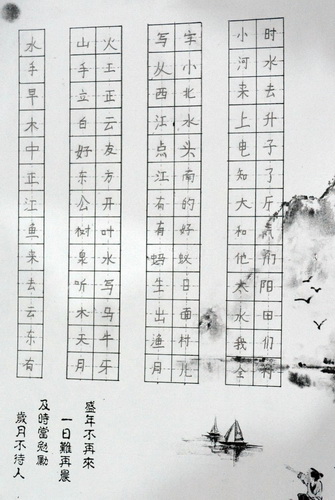 时水去升子了厅们阳田们
小河来上电知大和他太永我全
字小北水头南的好蚁日面村儿
写从西江点江有有蚂生出渔月
火工正云友方开叶水写马牛牙
山手立白好东公树泉听木天月
水手早木中正江鱼来去云东有
盛年不再來
一日難再晨
及時當勉勵
歲月不待人